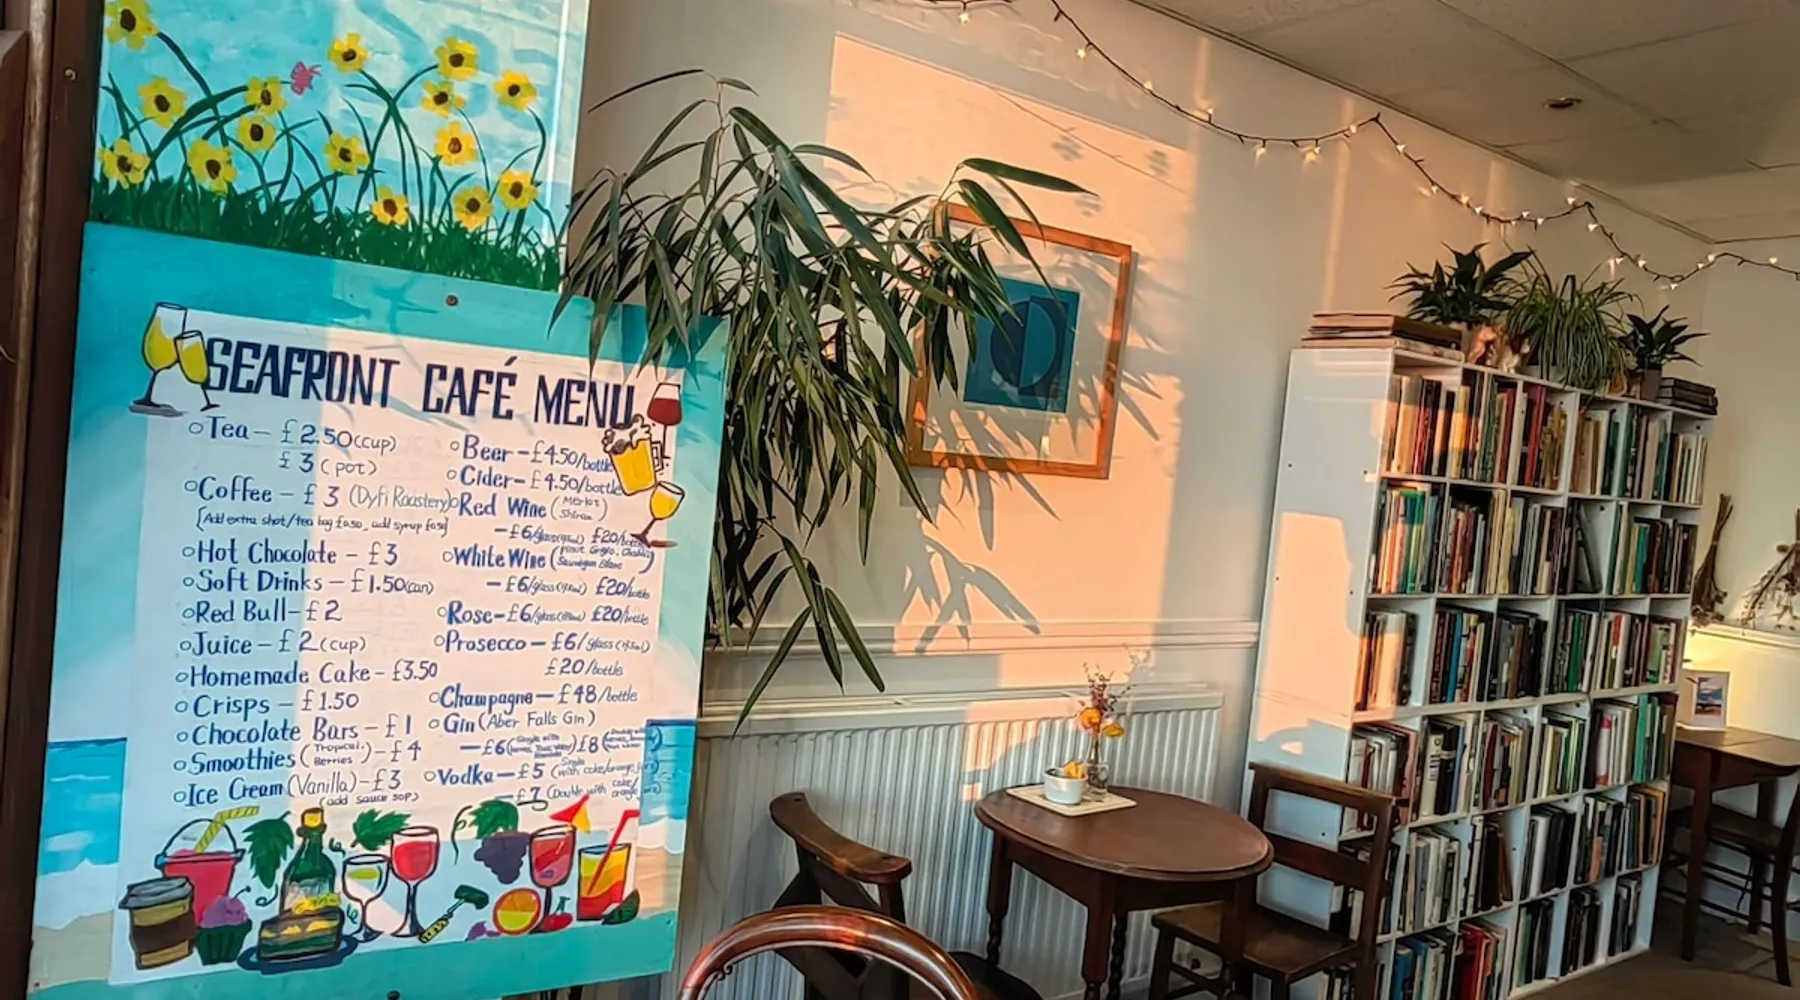 SEAFRONT CAFÉ MENU
○Tea – £2.50(cup)
£3 (pot)
○Coffee – £3 (Dyfi Roastery)
[Add extra shot/tea bag £0.50, add syrup £0.50]
○Hot Chocolate – £3
○Soft Drinks – £1.50(can)
○Red Bull – £2
○Juice – £2(cup)
○Homemade Cake – £3.50
○Crisps – £1.50
○Chocolate Bars – £1
○Smoothies (Tropical. Berries) – £4
○Ice Cream (Vanilla) – £3
(add sauce 50p)
○Beer – £4.50/bottle
○Cider – £4.50/bottle
○Red Wine (Merlot Shiraz)
– £6/glass £20/bottle
○White Wine (Pinot Grigio, Sauvignon Blanc)
– £6/glass £20/bottle
○Rose – £6/glass £20/bottle
○Prosecco – £6/glass
£20/bottle
○Champagne – £48/bottle
○Gin (Aber Falls Gin)
– £6 (Single with £8
○Vodka – £5 (Single with coke/orange
– £7 (Double with coke/orange